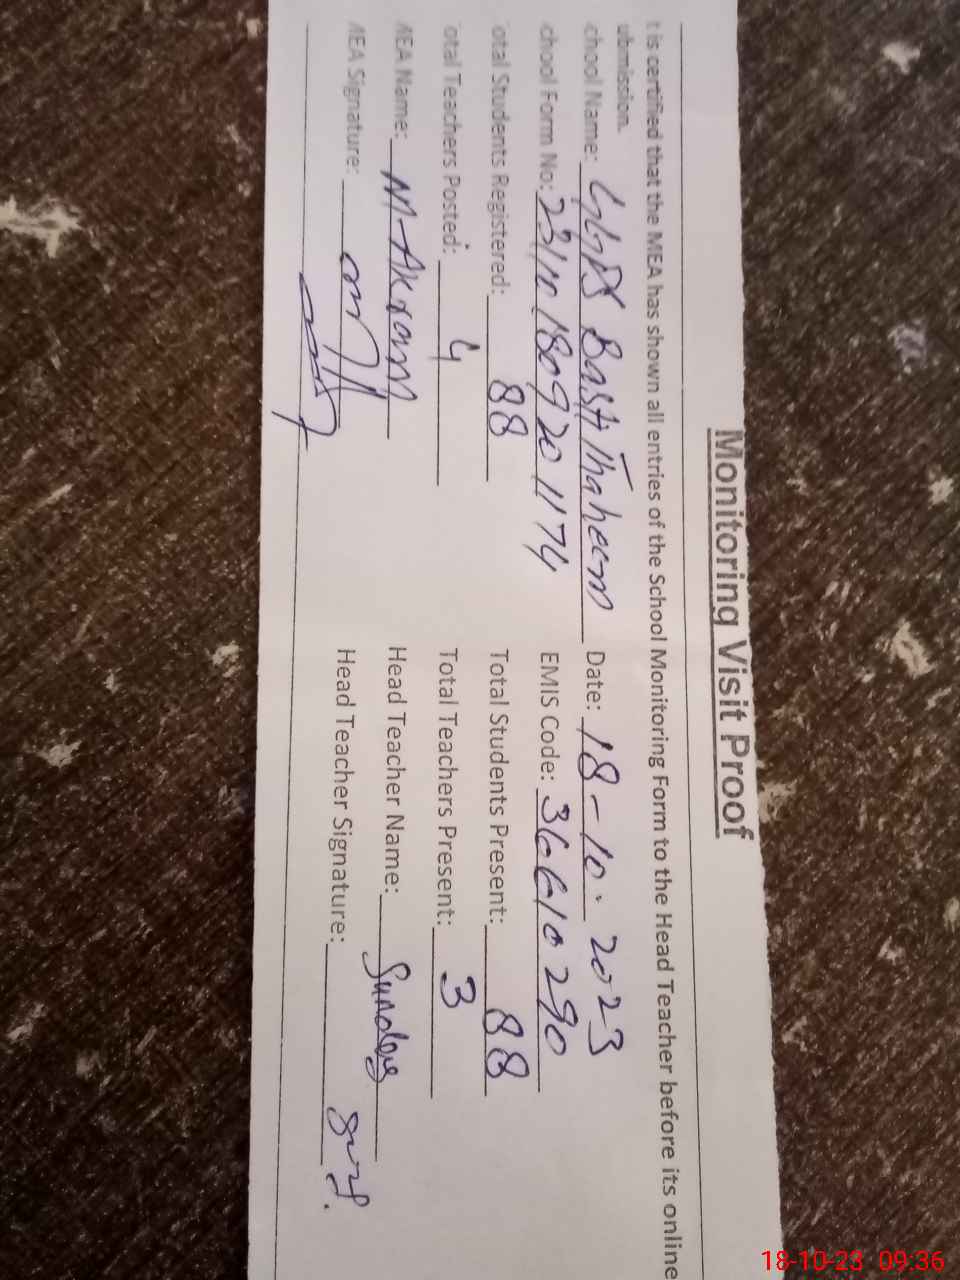 Monitoring Visit Proof
t is certified that the MEA has shown all entries of the School Monitoring Form to the Head Teacher before its online
ubmission.
chool Name: GGPS Basti Thaheem Date: 18-10-2023
chool Form No: EMIS Code: 36610290
otal Students Registered: 88 Total Students Present: 88
otal Teachers Posted: 4 Total Teachers Present: 3
MEA Name: M-Akram Head Teacher Name: Sundas
MEA Signature: Head Teacher Signature:
18-10-23 09:36